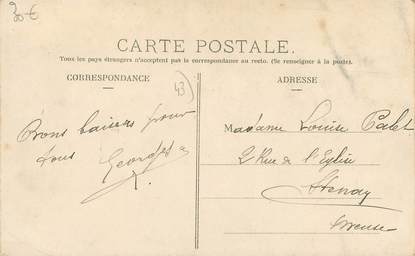 30€
CARTE POSTALE.
Tous les pays étrangers n'acceptent pas la correspondance au recto. (Se renseigner à la poste).
CORRESPONDANCE
ADRESSE
43
Bons baisers pour
tous Georges
Madame Louise Palet
2 Rue de l'Eglise
Stenay
Meuse